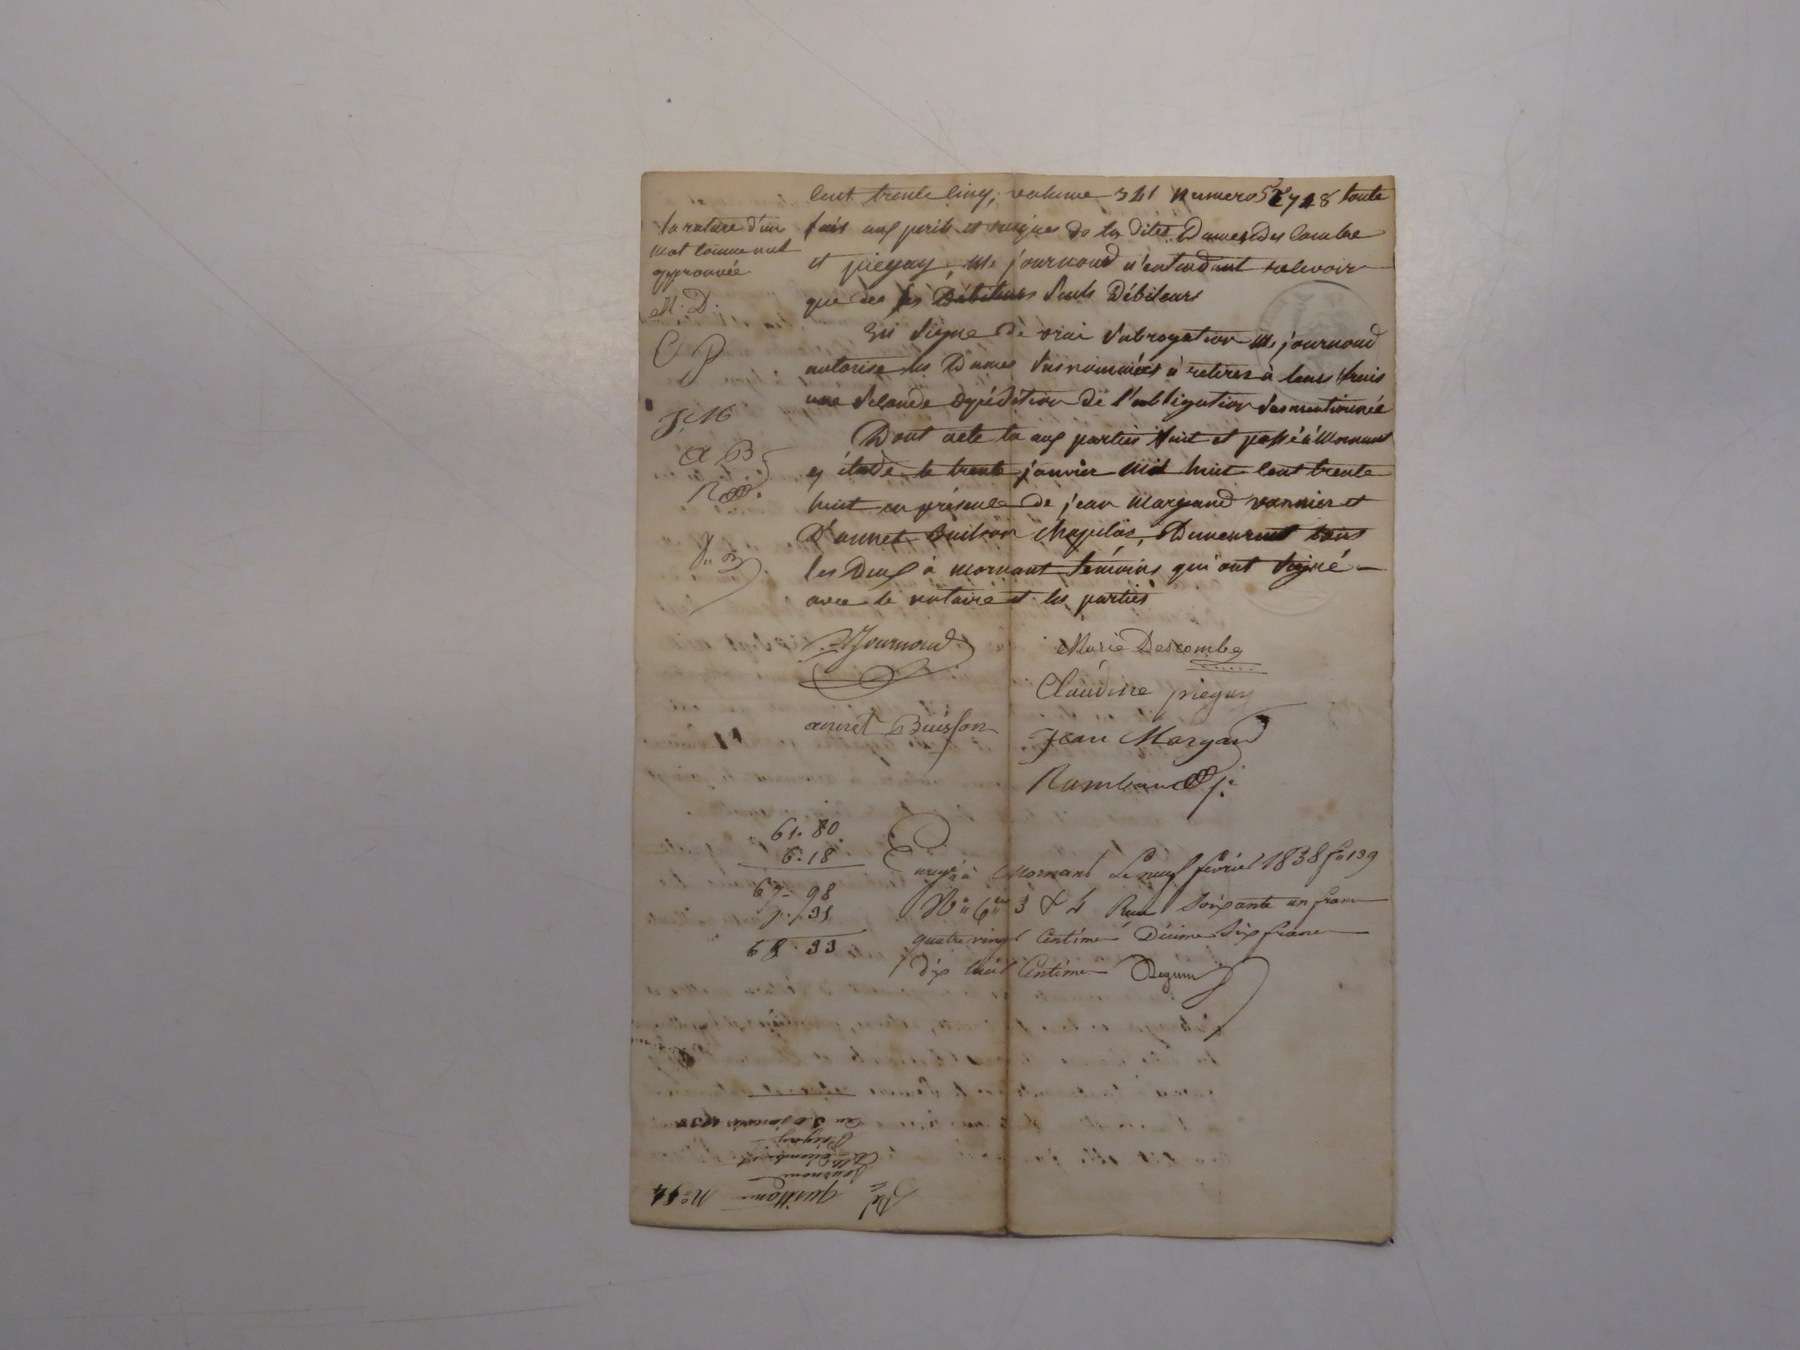 cent trente cinq, volume 341 numero 52718 toute
fois aux perils et risques de la dites Dames Des Combe
et piegay, Me journoud n'entendant relevoir
que des ses Débiteurs seuls Débiteurs
En signe de vraie subrogation Me journoud
autorise les Dames susnommées à retirer à leurs frais
une seconde expédition de l'obligation susmentionnée
Dont acte lu aux parties fait et passé à Mornant
en étude le trente janvier mil huit cent trente
huit en présence de jean margand vannier et
D'annet Buisson chapelier, Demeurant tous
les Deux à mornant témoins qui ont signé
avec le notaire et les parties
la rature d'un
mot comme nul
approuvée
M. D.
C P
J. M
A B
R
Journoud
Marie Descombe
Claudine piegay
annet Buisson
Jean Margand
Rambaud
61. 80
6. 18
67 - 98
68. 33
Enregé à Mornant Le neuf fevrier 1838 fo 139
Vo Ces 3 & 4 Reçu Soixante un franc
quatre vingt Centimes Décime Six francs
dix huit Centimes
No 54
quittance
Journoud
Piegay
Du 30 janvier 1838